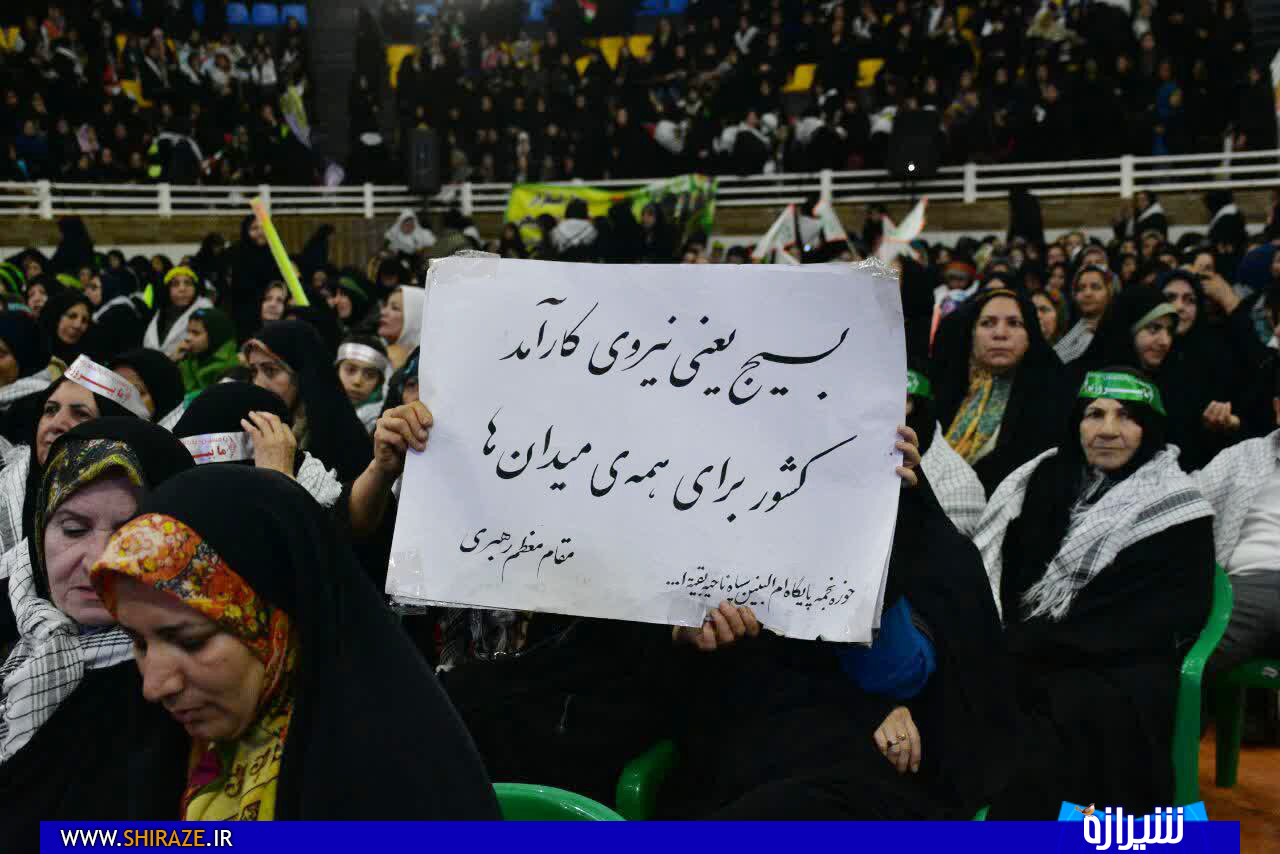 بسیج یعنی نیروی کارآمد
کشور برای همه‌ی میدان ها
مقام معظم رهبری
حوزه نجمه پایگاه ام البنین سپاه ناحیه بقیة ا...
WWW.SHIRAZE.IR
شیرازه